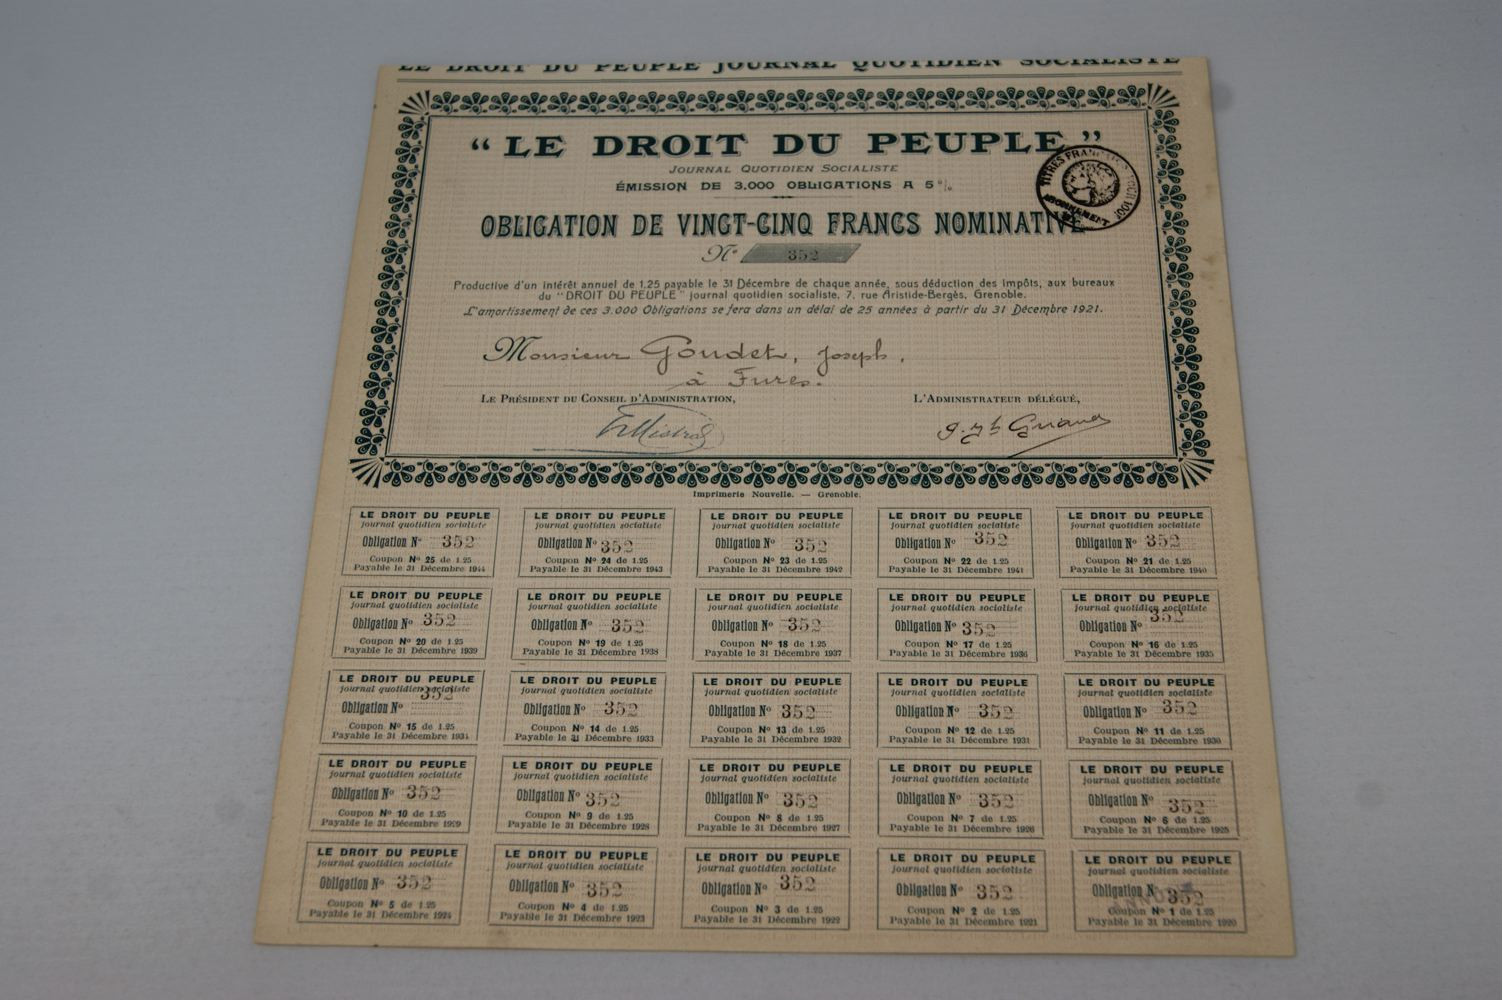 LE DROIT DU PEUPLE JOURNAL QUOTIDIEN SOCIALISTE
“ LE DROIT DU PEUPLE ”
JOURNAL QUOTIDIEN SOCIALISTE
ÉMISSION DE 3.000 OBLIGATIONS A 5%
TITRES FRANÇAIS
ABONNEMENT
OBLIGATION DE VINGT-CINQ FRANCS NOMINATIVE
N° 352
Productive d'un intérêt annuel de 1.25 payable le 31 Décembre de chaque année, sous déduction des impôts, aux bureaux
du "DROIT DU PEUPLE" journal quotidien socialiste, 7, rue Aristide-Bergès, Grenoble.
L'amortissement de ces 3.000 Obligations se fera dans un délai de 25 années à partir du 31 Décembre 1921.
Monsieur Goudet, Joseph.
à Fures.
LE PRÉSIDENT DU CONSEIL D'ADMINISTRATION, L'ADMINISTRATEUR DÉLÉGUÉ,
Mistral
Imprimerie Nouvelle. — Grenoble.
LE DROIT DU PEUPLE
journal quotidien socialiste
Obligation N° 352
Coupon N° 25 de 1.25
Payable le 31 Décembre 1944
LE DROIT DU PEUPLE
journal quotidien socialiste
Obligation N° 352
Coupon N° 24 de 1.25
Payable le 31 Décembre 1943
LE DROIT DU PEUPLE
journal quotidien socialiste
Obligation N° 352
Coupon N° 23 de 1.25
Payable le 31 Décembre 1942
LE DROIT DU PEUPLE
journal quotidien socialiste
Obligation N° 352
Coupon N° 22 de 1.25
Payable le 31 Décembre 1941
LE DROIT DU PEUPLE
journal quotidien socialiste
Obligation N° 352
Coupon N° 21 de 1.25
Payable le 31 Décembre 1940
LE DROIT DU PEUPLE
journal quotidien socialiste
Obligation N° 352
Coupon N° 20 de 1.25
Payable le 31 Décembre 1939
LE DROIT DU PEUPLE
journal quotidien socialiste
Obligation N° 352
Coupon N° 19 de 1.25
Payable le 31 Décembre 1938
LE DROIT DU PEUPLE
journal quotidien socialiste
Obligation N° 352
Coupon N° 18 de 1.25
Payable le 31 Décembre 1937
LE DROIT DU PEUPLE
journal quotidien socialiste
Obligation N° 352
Coupon N° 17 de 1.25
Payable le 31 Décembre 1936
LE DROIT DU PEUPLE
journal quotidien socialiste
Obligation N° 352
Coupon N° 16 de 1.25
Payable le 31 Décembre 1935
LE DROIT DU PEUPLE
journal quotidien socialiste
Obligation N° 352
Coupon N° 15 de 1.25
Payable le 31 Décembre 1934
LE DROIT DU PEUPLE
journal quotidien socialiste
Obligation N° 352
Coupon N° 14 de 1.25
Payable le 31 Décembre 1933
LE DROIT DU PEUPLE
journal quotidien socialiste
Obligation N° 352
Coupon N° 13 de 1.25
Payable le 31 Décembre 1932
LE DROIT DU PEUPLE
journal quotidien socialiste
Obligation N° 352
Coupon N° 12 de 1.25
Payable le 31 Décembre 1931
LE DROIT DU PEUPLE
journal quotidien socialiste
Obligation N° 352
Coupon N° 11 de 1.25
Payable le 31 Décembre 1930
LE DROIT DU PEUPLE
journal quotidien socialiste
Obligation N° 352
Coupon N° 10 de 1.25
Payable le 31 Décembre 1929
LE DROIT DU PEUPLE
journal quotidien socialiste
Obligation N° 352
Coupon N° 9 de 1.25
Payable le 31 Décembre 1928
LE DROIT DU PEUPLE
journal quotidien socialiste
Obligation N° 352
Coupon N° 8 de 1.25
Payable le 31 Décembre 1927
LE DROIT DU PEUPLE
journal quotidien socialiste
Obligation N° 352
Coupon N° 7 de 1.25
Payable le 31 Décembre 1926
LE DROIT DU PEUPLE
journal quotidien socialiste
Obligation N° 352
Coupon N° 6 de 1.25
Payable le 31 Décembre 1925
LE DROIT DU PEUPLE
journal quotidien socialiste
Obligation N° 352
Coupon N° 5 de 1.25
Payable le 31 Décembre 1924
LE DROIT DU PEUPLE
journal quotidien socialiste
Obligation N° 352
Coupon N° 4 de 1.25
Payable le 31 Décembre 1923
LE DROIT DU PEUPLE
journal quotidien socialiste
Obligation N° 352
Coupon N° 3 de 1.25
Payable le 31 Décembre 1922
LE DROIT DU PEUPLE
journal quotidien socialiste
Obligation N° 352
Coupon N° 2 de 1.25
Payable le 31 Décembre 1921
LE DROIT DU PEUPLE
journal quotidien socialiste
Obligation N° 352
Coupon N° 1 de 1.25
Payable le 31 Décembre 1920